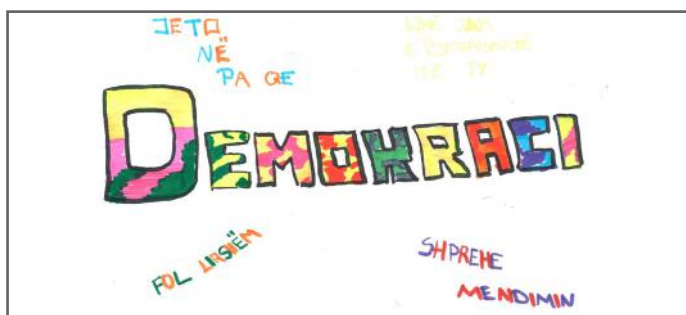 JETO
NË
PA QE
ME TY
DEMOKRACI
FOL LIRSHËM
SHPREHE
MENDIMIN